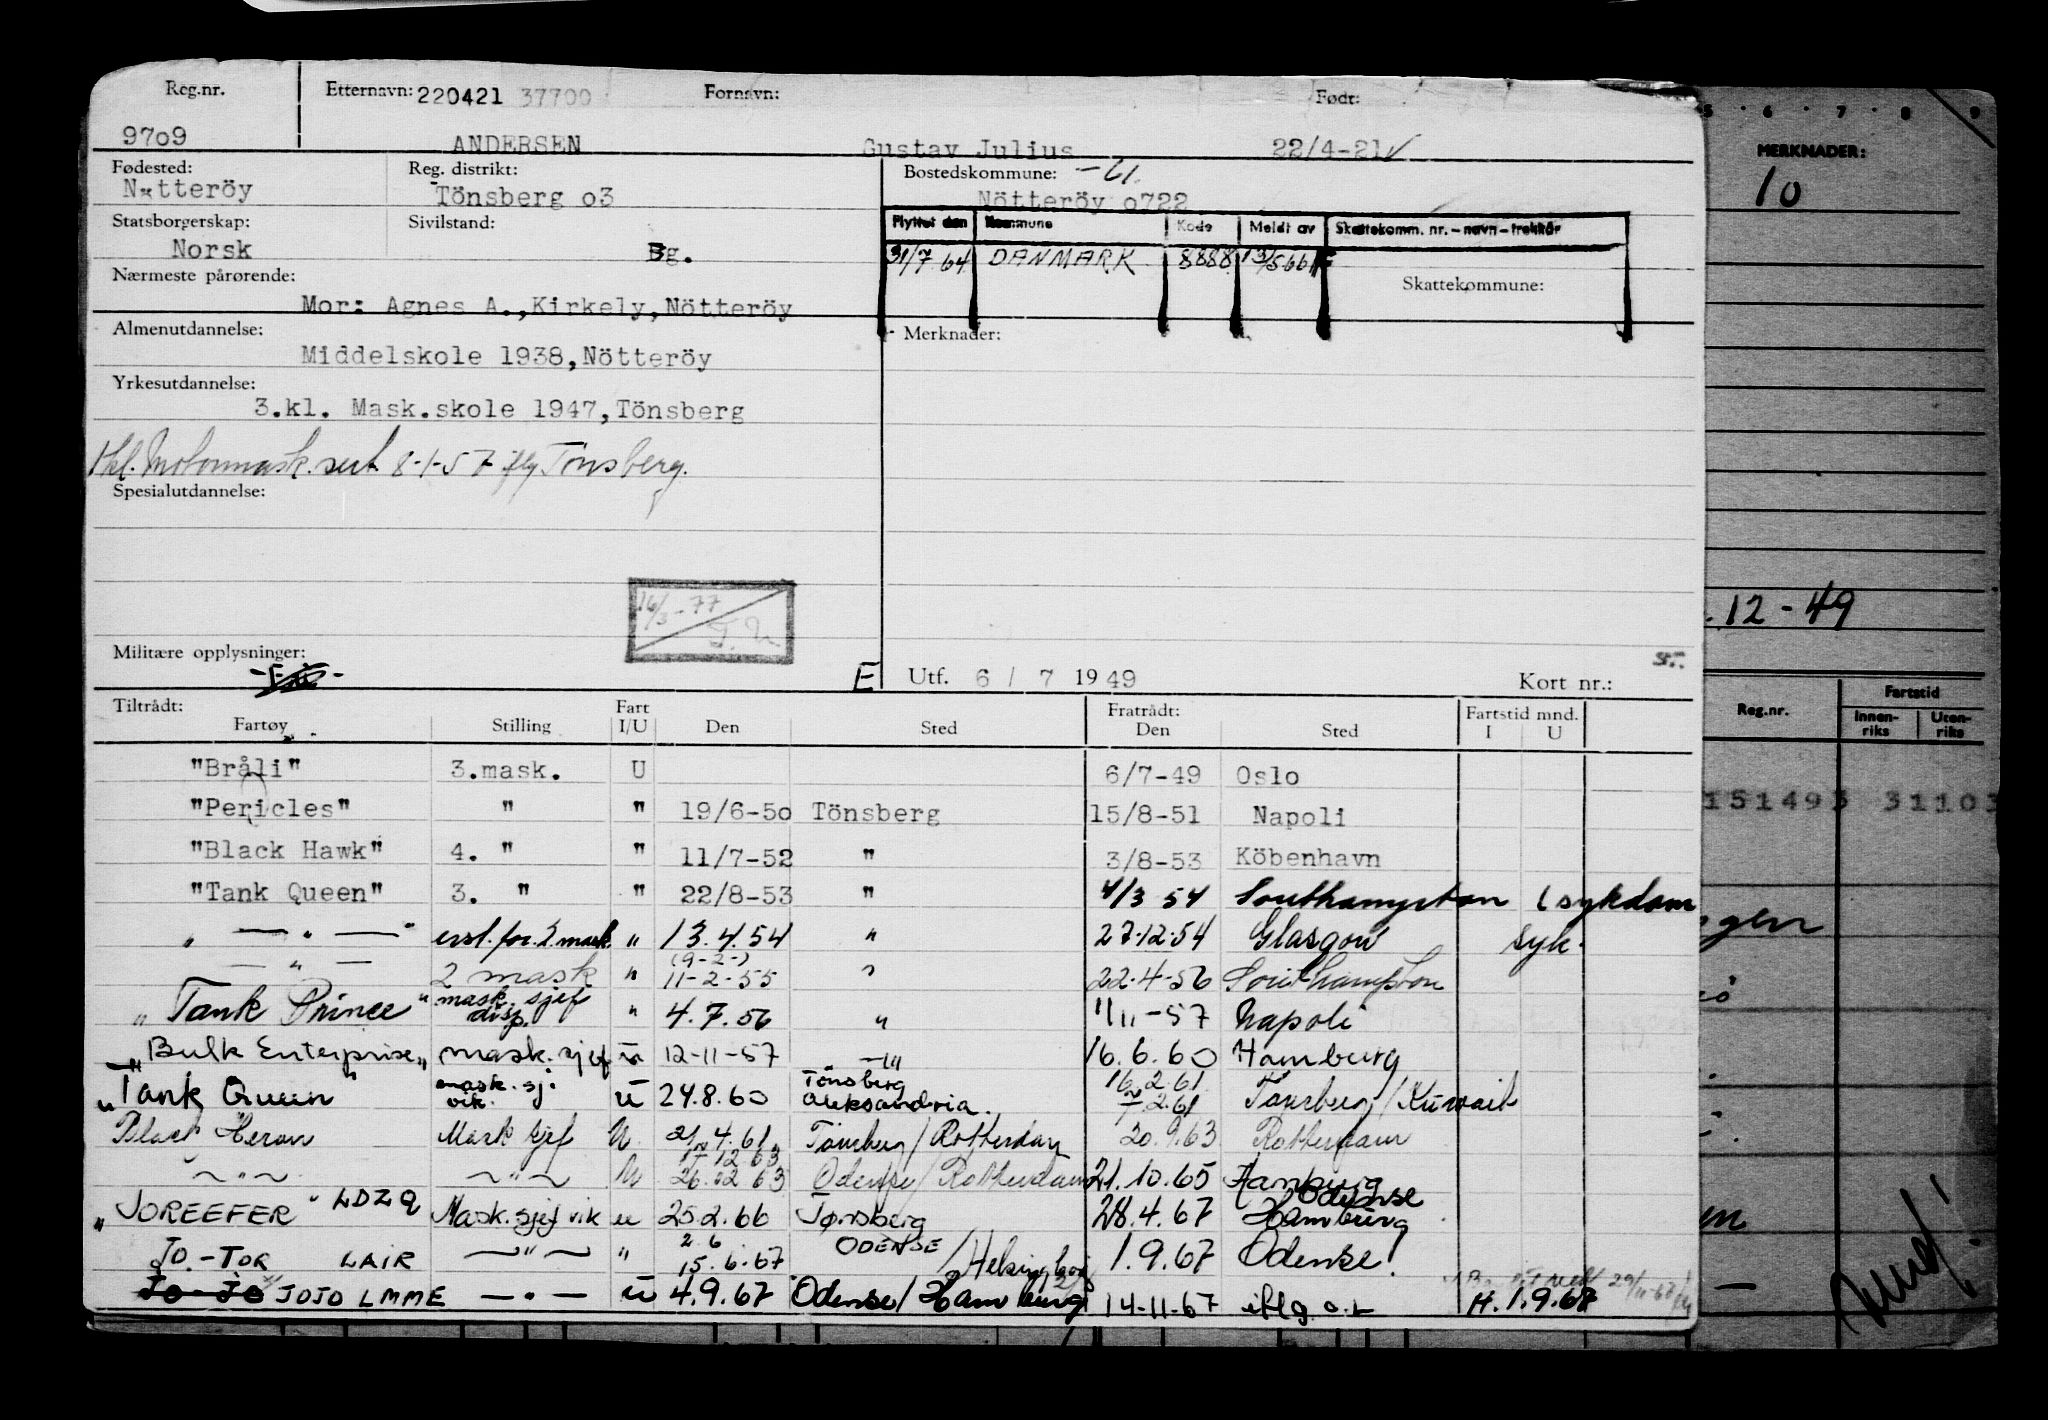 Reg.nr. Etternavn: 220421 37700 Fornavn: Født:
9709 ANDERSEN Gustav Julius 22/4-21 ✓
Fødested: Reg. distrikt: Bostedskommune: -61.
Nøtteröy Tönsberg o3 Nötteröy o722
Statsborgerskap: Sivilstand:
Norsk Bg.
Flyttet den Kommune Kode Meldt av Skattekomm. nr. - navn - trekkår
31/7 64 DANMARK 8888
Skattekommune:
Nærmeste pårørende:
Mor: Agnes A.,Kirkely,Nötteröy
Almenutdannelse: Merknader:
Middelskole 1938,Nötteröy
Yrkesutdannelse:
3.kl. Mask.skole 1947,Tönsberg
Motormask. sert. 8-1-57 iflg Tönsberg.
Spesialutdannelse:
16/3-77
Militære opplysninger:
E Utf. 6 / 7 1949 Kort nr.:
Tiltrådt: Fart Fratrådt: Fartstid mnd.
Fartøy Stilling I/U Den Sted Den Sted I U
"Bråli" 3.mask. U 6/7-49 Oslo
"Pericles" " " 19/6-50 Tönsberg 15/8-51 Napoli
"Black Hawk" 4. " " 11/7-52 " 3/8-53 Köbenhavn
"Tank Queen" 3. " " 22/8-53 " 4/3 54 Southampton (sykdom
" — " — " erst. for. 2 mask. " 13.4.54 " 27.12.54 Glasgow syk.
— " — 2 mask " (9-2-) 11-2-55 " 22.4-56 Southampton
" Tank Prince " mask. sjef disp. " 4.7.56 " 1/11-57 Napoli
" Bulk Enterprise " mask. sjef u 12-11-57 — " 16.6.60 Hamburg
" Tank Queen " mask. sj. vik. u 24.8.60 Tönsberg Aleksandria. 16.2.61 2.61 Tönsberg/Kuwait
Black Heron Mask sjef U 21/4.61 Tönsberg/Rotterdam 20.9.63 Rotterdam
~ " ~ ~ " ~ U 17.12.63 26.12 63 Odense/Rotterdam 21.10.65 Hamburg
" JOREEFER " LDZQ Mask. sjef vik u 25.2.66 Tønsberg 28.4.67 Odense Hamburg
JO.-TOR LAIR ~ " ~ " 2.6 15.6.67 ODENSE /Helsingborg 1.9.67 Odense!
Jo-Jo JOJO LMME — " — u 4.9.67 Odense/Hamburg 14-11-67 iflg. o.k H. 1.9.67
5 · 6 · 7 · 8 · 9
MERKNADER:
10
.12-49
Reg.nr. Fartstid
Innen-riks Uten-riks
151493 31103